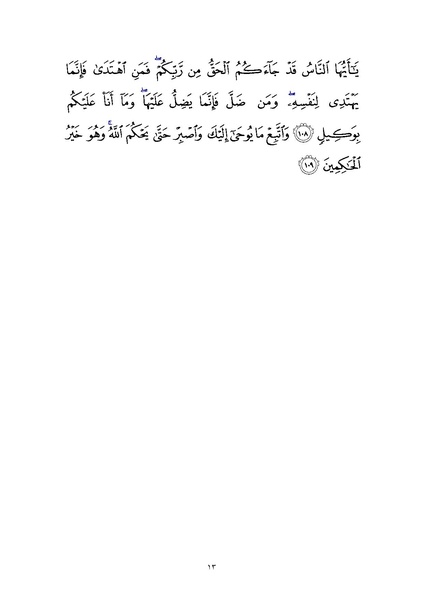 يَـٰٓأَيُّهَا ٱلنَّاسُ قَدْ جَآءَكُمُ ٱلْحَقُّ مِن رَّبِّكُمْ ۖ فَمَنِ ٱهْتَدَىٰ فَإِنَّمَا
يَهْتَدِى لِنَفْسِهِۦ ۖ وَمَن ضَلَّ فَإِنَّمَا يَضِلُّ عَلَيْهَا ۖ وَمَآ أَنَا۠ عَلَيْكُم
بِوَكِيلٍ ١٠٨ وَٱتَّبِعْ مَا يُوحَىٰٓ إِلَيْكَ وَٱصْبِرْ حَتَّىٰ يَحْكُمَ ٱللَّهُ ۚ وَهُوَ خَيْرُ
ٱلْحَـٰكِمِينَ ١٠٩
١٣